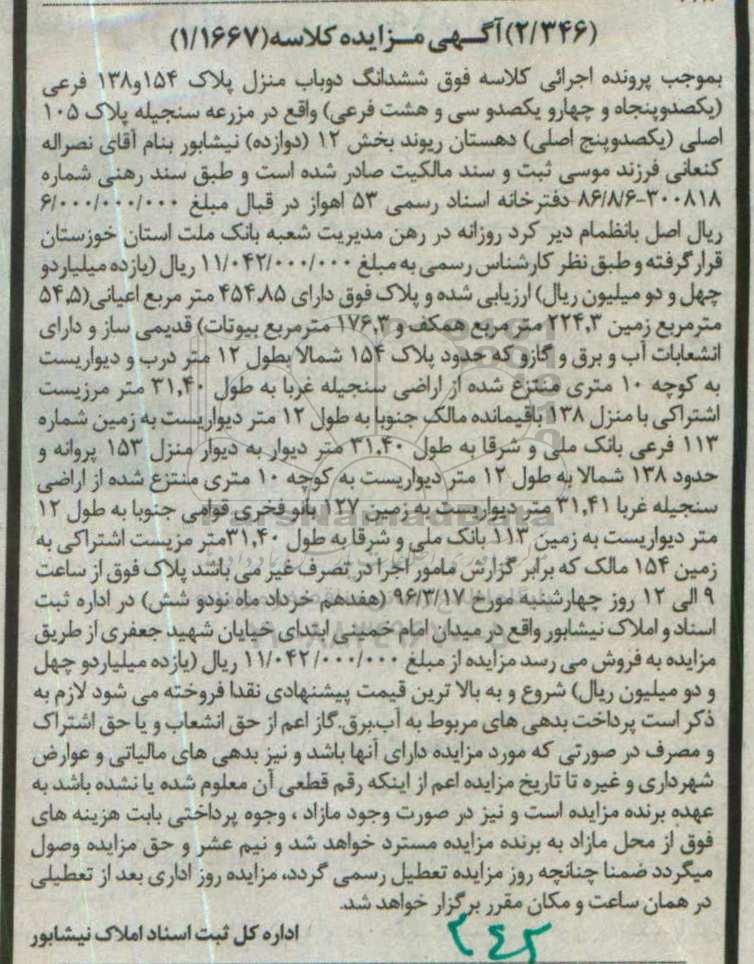 (۲/۳۴۶)آگـهی مـزایده کلاسه(۱/۱۶۶۷)
بموجب پرونده اجرائی کلاسه فوق ششدانگ دوباب منزل پلاک ۱۵۴و۱۳۸ فرعی
(یکصدوپنجاه و چهارو یکصدو سی و هشت فرعی) واقع در مزرعه سنجیله پلاک ۱۰۵
اصلی (یکصدوپنج اصلی) دهستان ریوند بخش ۱۲ (دوازده) نیشابور بنام آقای نصراله
کنعانی فرزند موسی ثبت و سند مالکیت صادر شده است و طبق سند رهنی شماره
۳۰۰۸۱۸-۸۶/۸/۶ دفترخانه اسناد رسمی ۵۳ اهواز در قبال مبلغ ۶/۰۰۰/۰۰۰/۰۰۰
ریال اصل بانظمام دیر کرد روزانه در رهن مدیریت شعبه بانک ملت استان خوزستان
قرار گرفته و طبق نظر کارشناس رسمی به مبلغ ۱۱/۰۴۲/۰۰۰/۰۰۰ ریال (یازده میلیاردو
چهل و دو میلیون ریال) ارزیابی شده و پلاک فوق دارای ۴۵۴،۸۵ متر مربع اعیانی(۵۴،۵
مترمربع زمین ۲۲۴،۳ متر مربع همکف و ۱۷۶،۳ مترمربع بیوتات) قدیمی ساز و دارای
انشعابات آب و برق و گازو که حدود پلاک ۱۵۴ شمالا بطول ۱۲ متر درب و دیواریست
به کوچه ۱۰ متری منتزع شده از اراضی سنجیله غربا به طول ۳۱،۴۰ متر مرزیست
اشتراکی با منزل ۱۳۸ باقیمانده مالک جنوبا به طول ۱۲ متر دیواریست به زمین شماره
۱۱۳ فرعی بانک ملی و شرقا به طول ۳۱،۴۰ متر دیوار به دیوار منزل ۱۵۳ پروانه و
حدود ۱۳۸ شمالا به طول ۱۲ متر دیواریست به کوچه ۱۰ متری منتزع شده از اراضی
سنجیله غربا ۳۱،۴۱ متر دیواریست به زمین ۱۲۷ بانو فخری قوامی جنوبا به طول ۱۲
متر دیواریست به زمین ۱۱۳ بانک ملی و شرقا به طول ۳۱،۴۰متر مزیست اشتراکی به
زمین ۱۵۴ مالک که برابر گزارش مامور اجرا در تصرف غیر می باشد پلاک فوق از ساعت
۹ الی ۱۲ روز چهارشنبه مورخ ۹۶/۳/۱۷ (هفدهم خرداد ماه نودو شش) در اداره ثبت
اسناد و املاک نیشابور واقع در میدان امام خمینی ابتدای خیابان شهید جعفری از طریق
مزایده به فروش می رسد مزایده از مبلغ ۱۱/۰۴۲/۰۰۰/۰۰۰ ریال (یازده میلیاردو چهل
و دو میلیون ریال) شروع و به بالا ترین قیمت پیشنهادی نقدا فروخته می شود لازم به
ذکر است پرداخت بدهی های مربوط به آب،برق،گاز اعم از حق انشعاب و یا حق اشتراک
و مصرف در صورتی که مورد مزایده دارای آنها باشد و نیز بدهی های مالیاتی و عوارض
شهرداری و غیره تا تاریخ مزایده اعم از اینکه رقم قطعی آن معلوم شده یا نشده باشد به
عهده برنده مزایده است و نیز در صورت وجود مازاد ، وجوه پرداختی بابت هزینه های
فوق از محل مازاد به برنده مزایده مسترد خواهد شد و نیم عشر و حق مزایده وصول
میگردد ضمنا چنانچه روز مزایده تعطیل رسمی گردد، مزایده روز اداری بعد از تعطیلی
در همان ساعت و مکان مقرر برگزار خواهد شد.
اداره کل ثبت اسناد املاک نیشابور